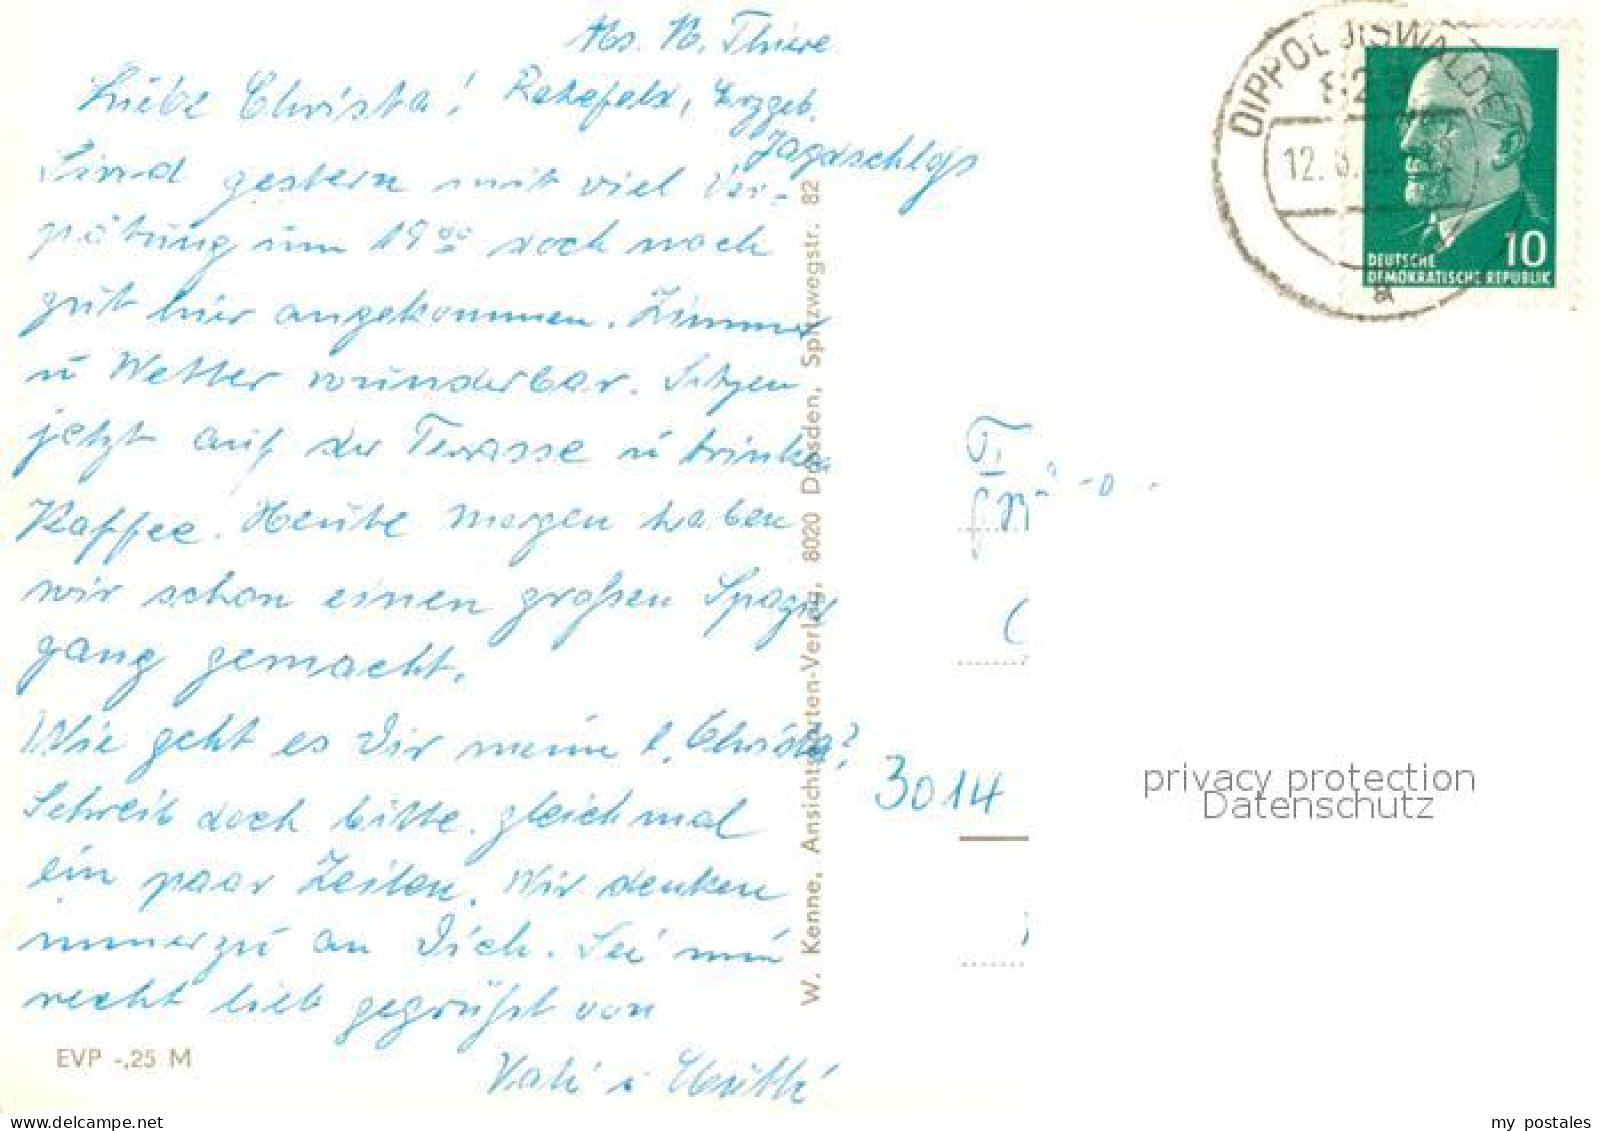 Abs. M. Thiere
Rehefeld, Erzgeb.
Jagdschloß
Liebe Christa!
Sind gestern mit viel Ver-
spätung um 19 00 doch noch
gut hier angekommen. Zimmer
u Wetter wunderbar. Sitzen
jetzt auf der Terasse u trinken
Kaffee. Heute morgen haben
wir schon einen großen Spazier
gang gemacht.
Wie geht es Dir meine l. Christa?
Schreib doch bitte gleich mal
ein paar Zeilen. Wir denken
immerzu an Dich. Sei nun
recht lieb gegrüßt von
Vati u Mutti
EVP -,25 M
W. Kenne, Ansichtskarten-Verlag, 8020 Dresden, Spitzwegstr. 82
DIPPOLDISWALDE
12. 8.
a
10
DEUTSCHE
DEMOKRATISCHE REPUBLIK
3014
privacy protection
Datenschutz
www.delcampe.net
my_postales